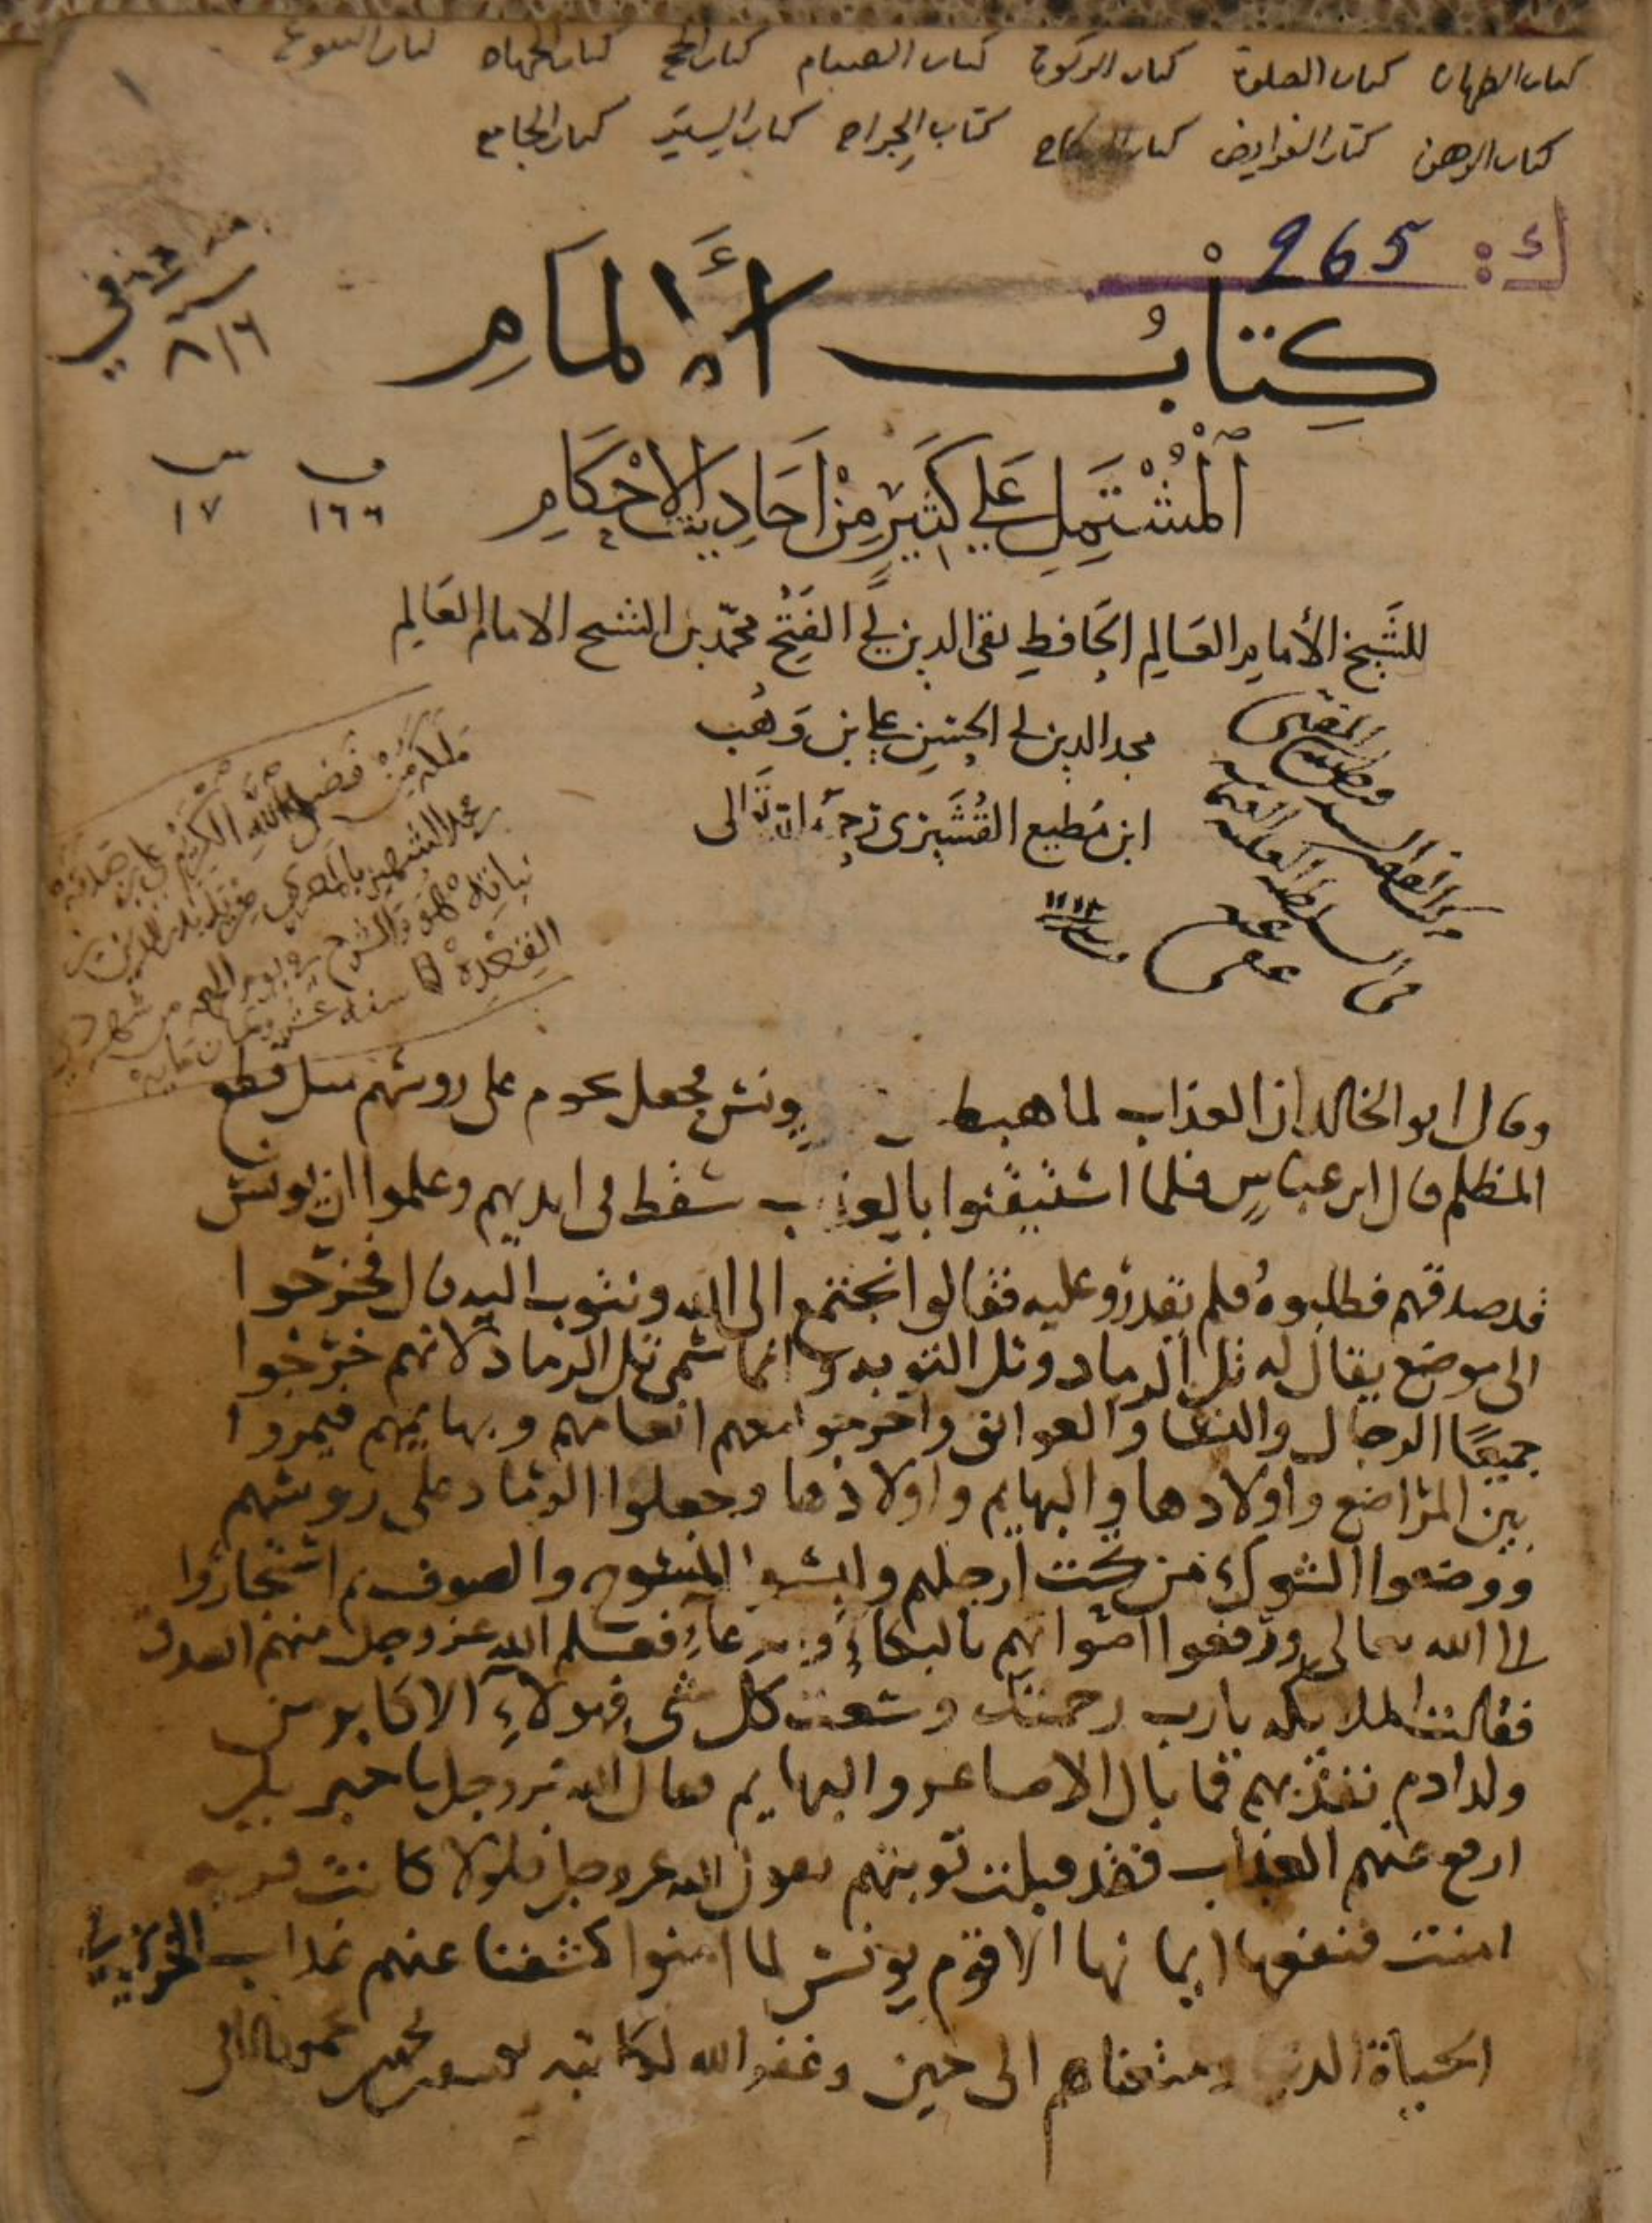 كتاب الطهارة كتاب الصلوة كتاب الزكوة كتاب الصيام كتاب الحج كتاب الجهاد كتاب البيوع
كتاب الرهن كتاب الفرايض كتاب النكاح كتاب الجراح كتاب السير كتاب الجامع
ك: 265
كِتَابُ الألمَامِ
ٱلْمُشْتَمِلِ عَلَى كَثِيرٍ مِنْ أَحَادِيثِ الاحْكَامِ
٨١٦
١٦٦ ١٧
للشَّيخ الأمام العَالِم الحَافِظ تقى الدين أبي الفَتْح محمّد بن الشيخ الامام العَالِم
مجد الدين أبي الحسين علي بن وَهْب
ابن مُطيع القُشَيْرى رحمه الله تعالى
مَلَكه مِنْ فَضلِ اللهِ الكَرِيْم
سنة ١١١٨
وقال ابو الخالد ان العذاب لما هبط يونس فجعل يحوم على روسهم مثل قطع
المظلم قال ابن عباسٍ فلما استيقنوا بالعذاب سقط فى ايديهم وعلموا ان يونس
قد صدقهم فطلبوهُ فلم يقدرو عليه فقالوا نجتمع الى الله ونتوب اليه قال فخرجوا
الى موضع يقال له تل الرماد وتل التوبه وانما سمى تل الرماد لانهم خرجوا
جميعًا الرجال والنسا والعواتق واخرجوا معهم انعامهم وبهايمهم فيمروا
بين المراضع واولادها والبهايم واولادها وجعلوا الرماد على روسهم
ووضعوا الشوك من تحت ارجلهم ولبسوا المسوح والصوف ثم استجاروا
الى الله تعالى ورفعوا اصواتهم بالبكاءِ والدعآءِ فعلم الله عز وجل منهم الصدق
فقالت الملايكه يارب رحمتك وسعت كل شى فهولاءِ الاكابر من
ولد ادم تعذبهم فما بال الاصاغر والبهايم فقال الله عز وجل ياجبريل
ارفع عنهم العذاب فقد قبلت توبتهم يقول الله عز وجل فلولا كانت قريه
امنت فنفعها ايمانها الا قوم يونس لما امنوا كشفنا عنهم عذاب الخزى فى
الحياة الدنيا ومتعناهم الى حين وغفر الله لكاتبه